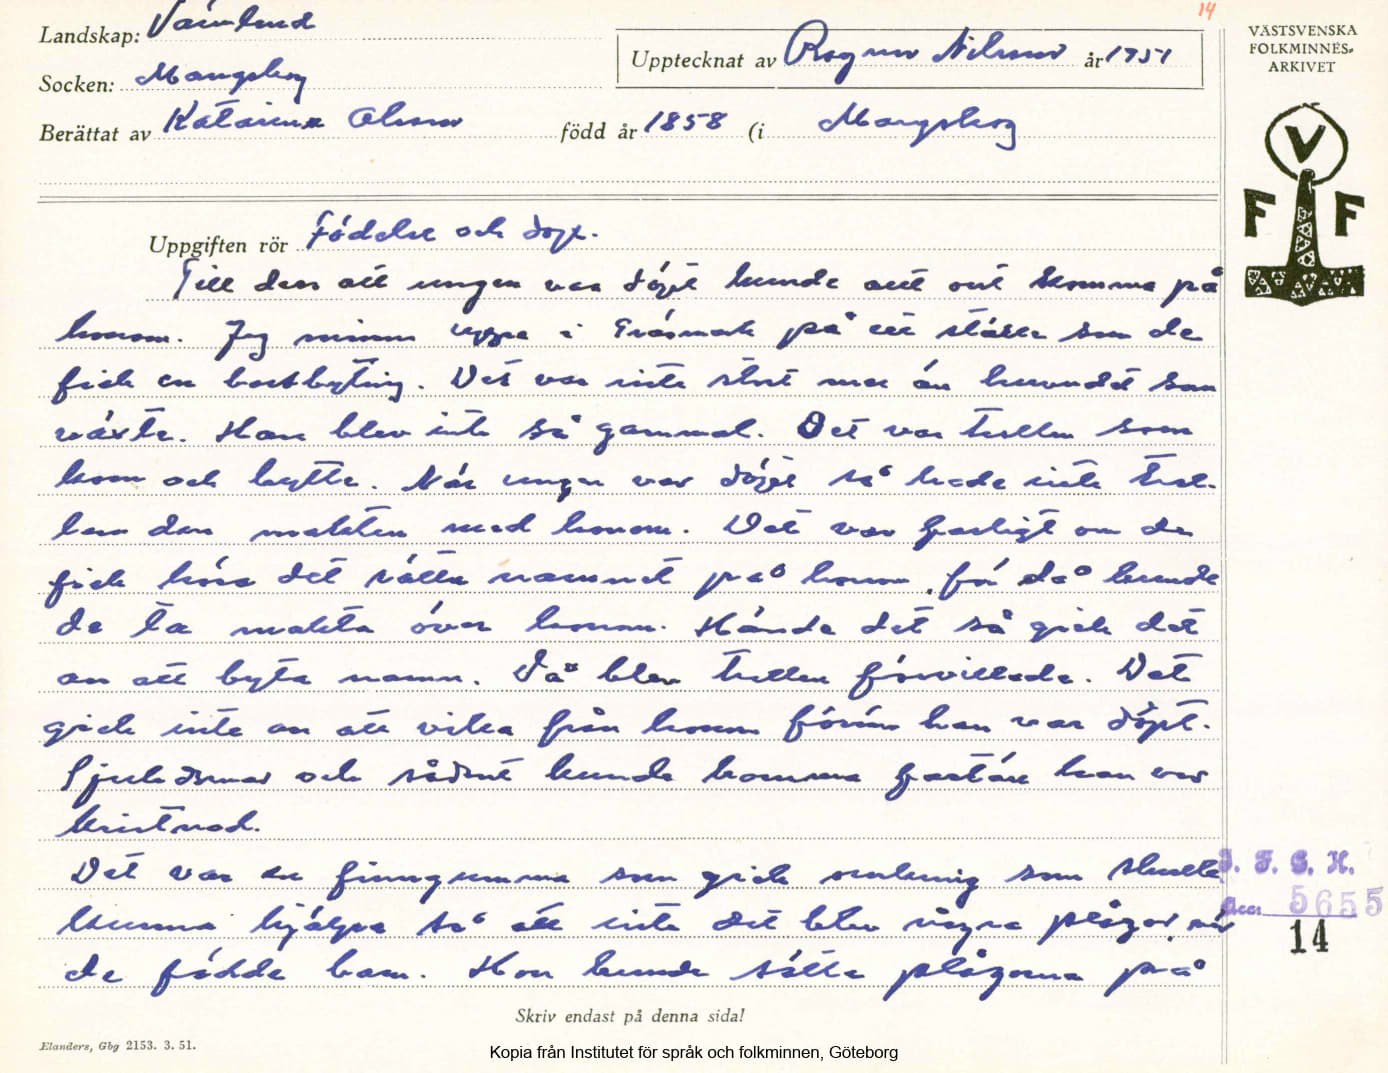 14
Landskap: Värmland
Socken: Mangskog
Upptecknat av Ragnar Nilsson år 1951
VÄSTSVENSKA
FOLKMINNES-
ARKIVET
Berättat av Katarina Olsson född år 1858 (i Mangskog
V
F F
Uppgiften rör Födelse och dop.
Till dess att ungen var döpt kunde allt ont komma på
honom. Jag minns uppe i Gräsmark på ett ställe som de
fick en bortbyting. Det var inte stort mer än huvudet som
växte. Han blev inte så gammal. Det var trollen som
kom och bytte. När ungen var döpt så hade inte trol-
len den makten med honom. Det var farligt om de
fick höra det rätta namnet på honom, för då kunde
de ta makta över honom. Hände det så gick det
an att byta namn. Då blev trollen förvillade. Det
gick inte an att vika från honom förrän han var döpt.
Sjukdomar och sådant kunde komma fastän han var
kristnad.
Det var en finngumma som gick omkring som skulle
kunna hjälpa så att inte det blev några plågor, när
de födde barn. Hon kunde sätta plågorna på
I. F. G. H.
Acc. 5655
14
Skriv endast på denna sida!
Elanders, Gbg 2153. 3. 51.
Kopia från Institutet för språk och folkminnen, Göteborg